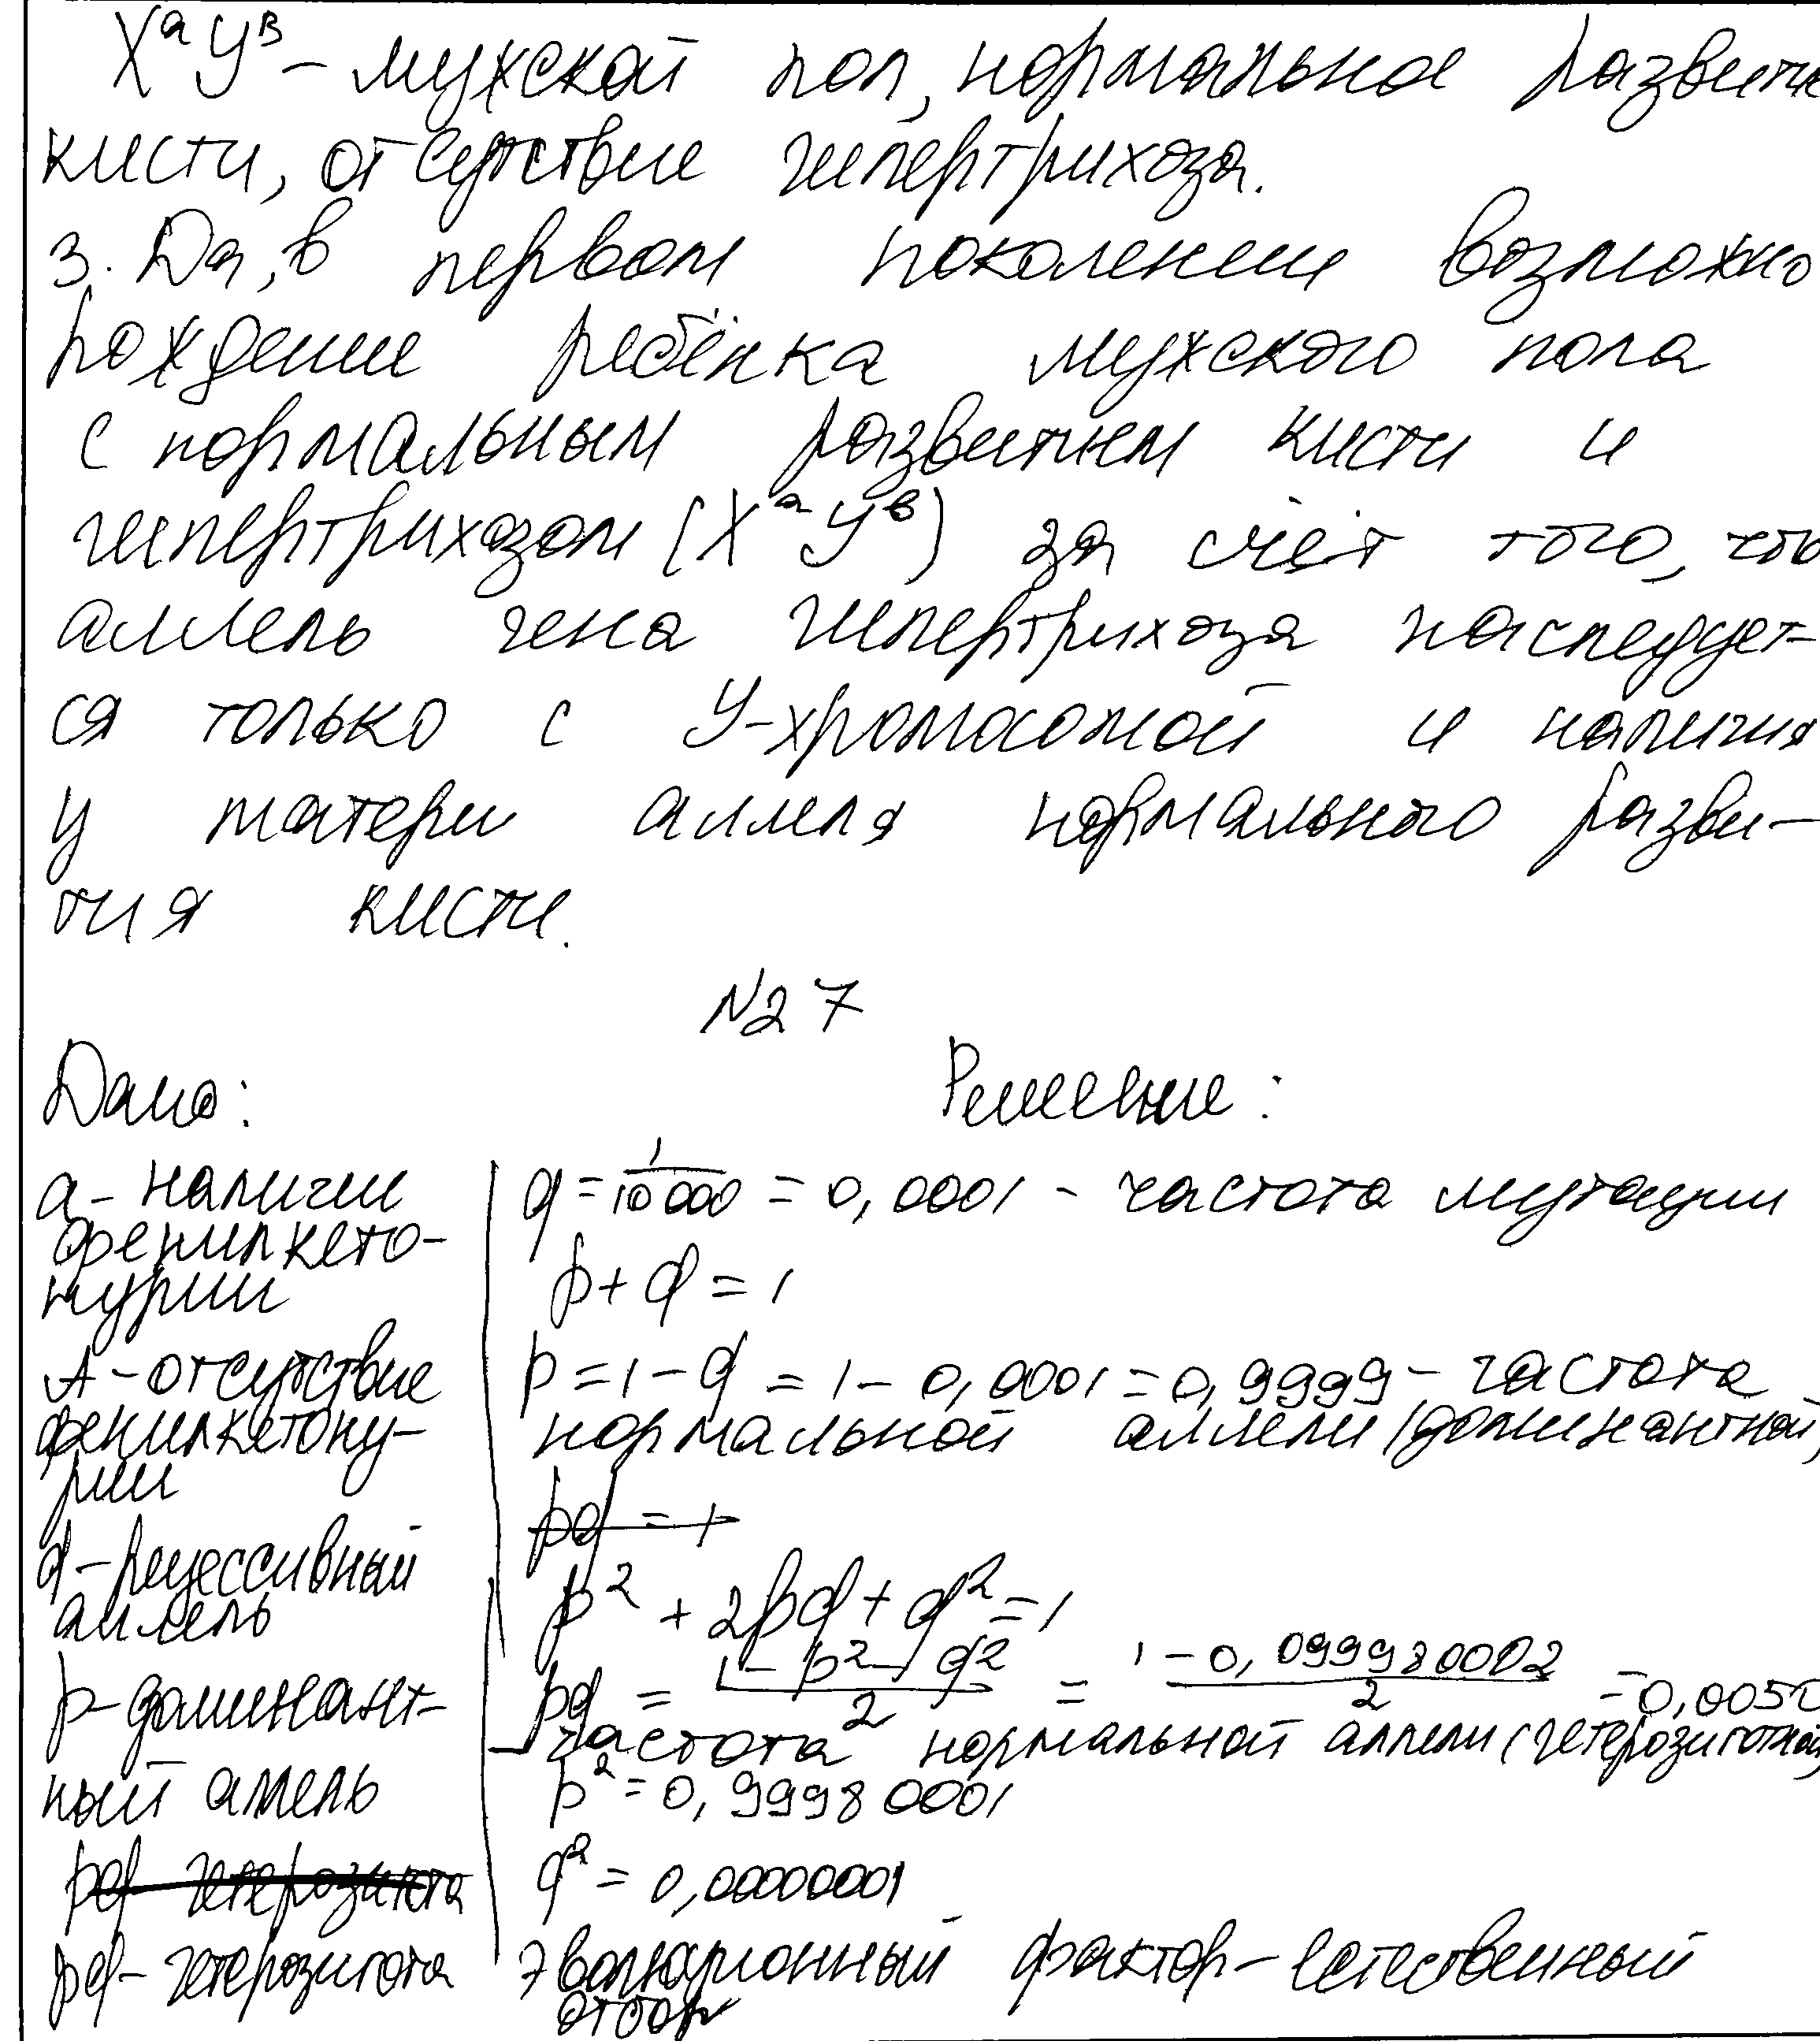 XᵃYᴮ – мужской пол, нормальное развити
кисти, отсутствие гипертрихоза.
3. Да, в первом поколении возможно
рождение ребёнка мужского пола
с нормальным развитием кисти и
гипертрихозом (XᵃYᵇ) за счёт того, что
аллель гена гипертрихоза наследует-
ся только с Y-хромосомой и наличия
у матери аллеля нормального разви-
тия кисти.
N27
Дано: Решение:
a – наличии
фенилкето-
нурии
A – отсутствие
фенилкетону-
рии
q – рецессивный
аллель
p – доминант-
ный аллель
pq – гетерозигота
pq – гетерозигота
q = 1/10 000 = 0,0001 – частота мутации
p + q = 1
p = 1 – q = 1 – 0,0001 = 0,9999 – частота
нормальной аллели (доминантной)
pq = 1
p² + 2pq + q² = 1
pq = (1 – p² – q²)/2 = (1 – 0,099980002)/2 = 0,005
– частота нормальной аллели (гетерозиготной)
p² = 0,99980001
q² = 0,00000001
Эволюционный фактор – естественный
отбор